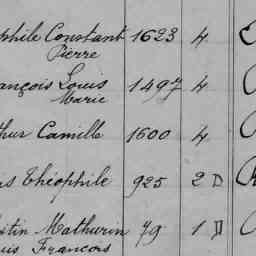 phile Constant 1623 4
Pierre
ançois Louis 1497 4
Marie
thur Camille 1600 4
Théophile 925 2 D
Mathurin 79 1 D
uis François